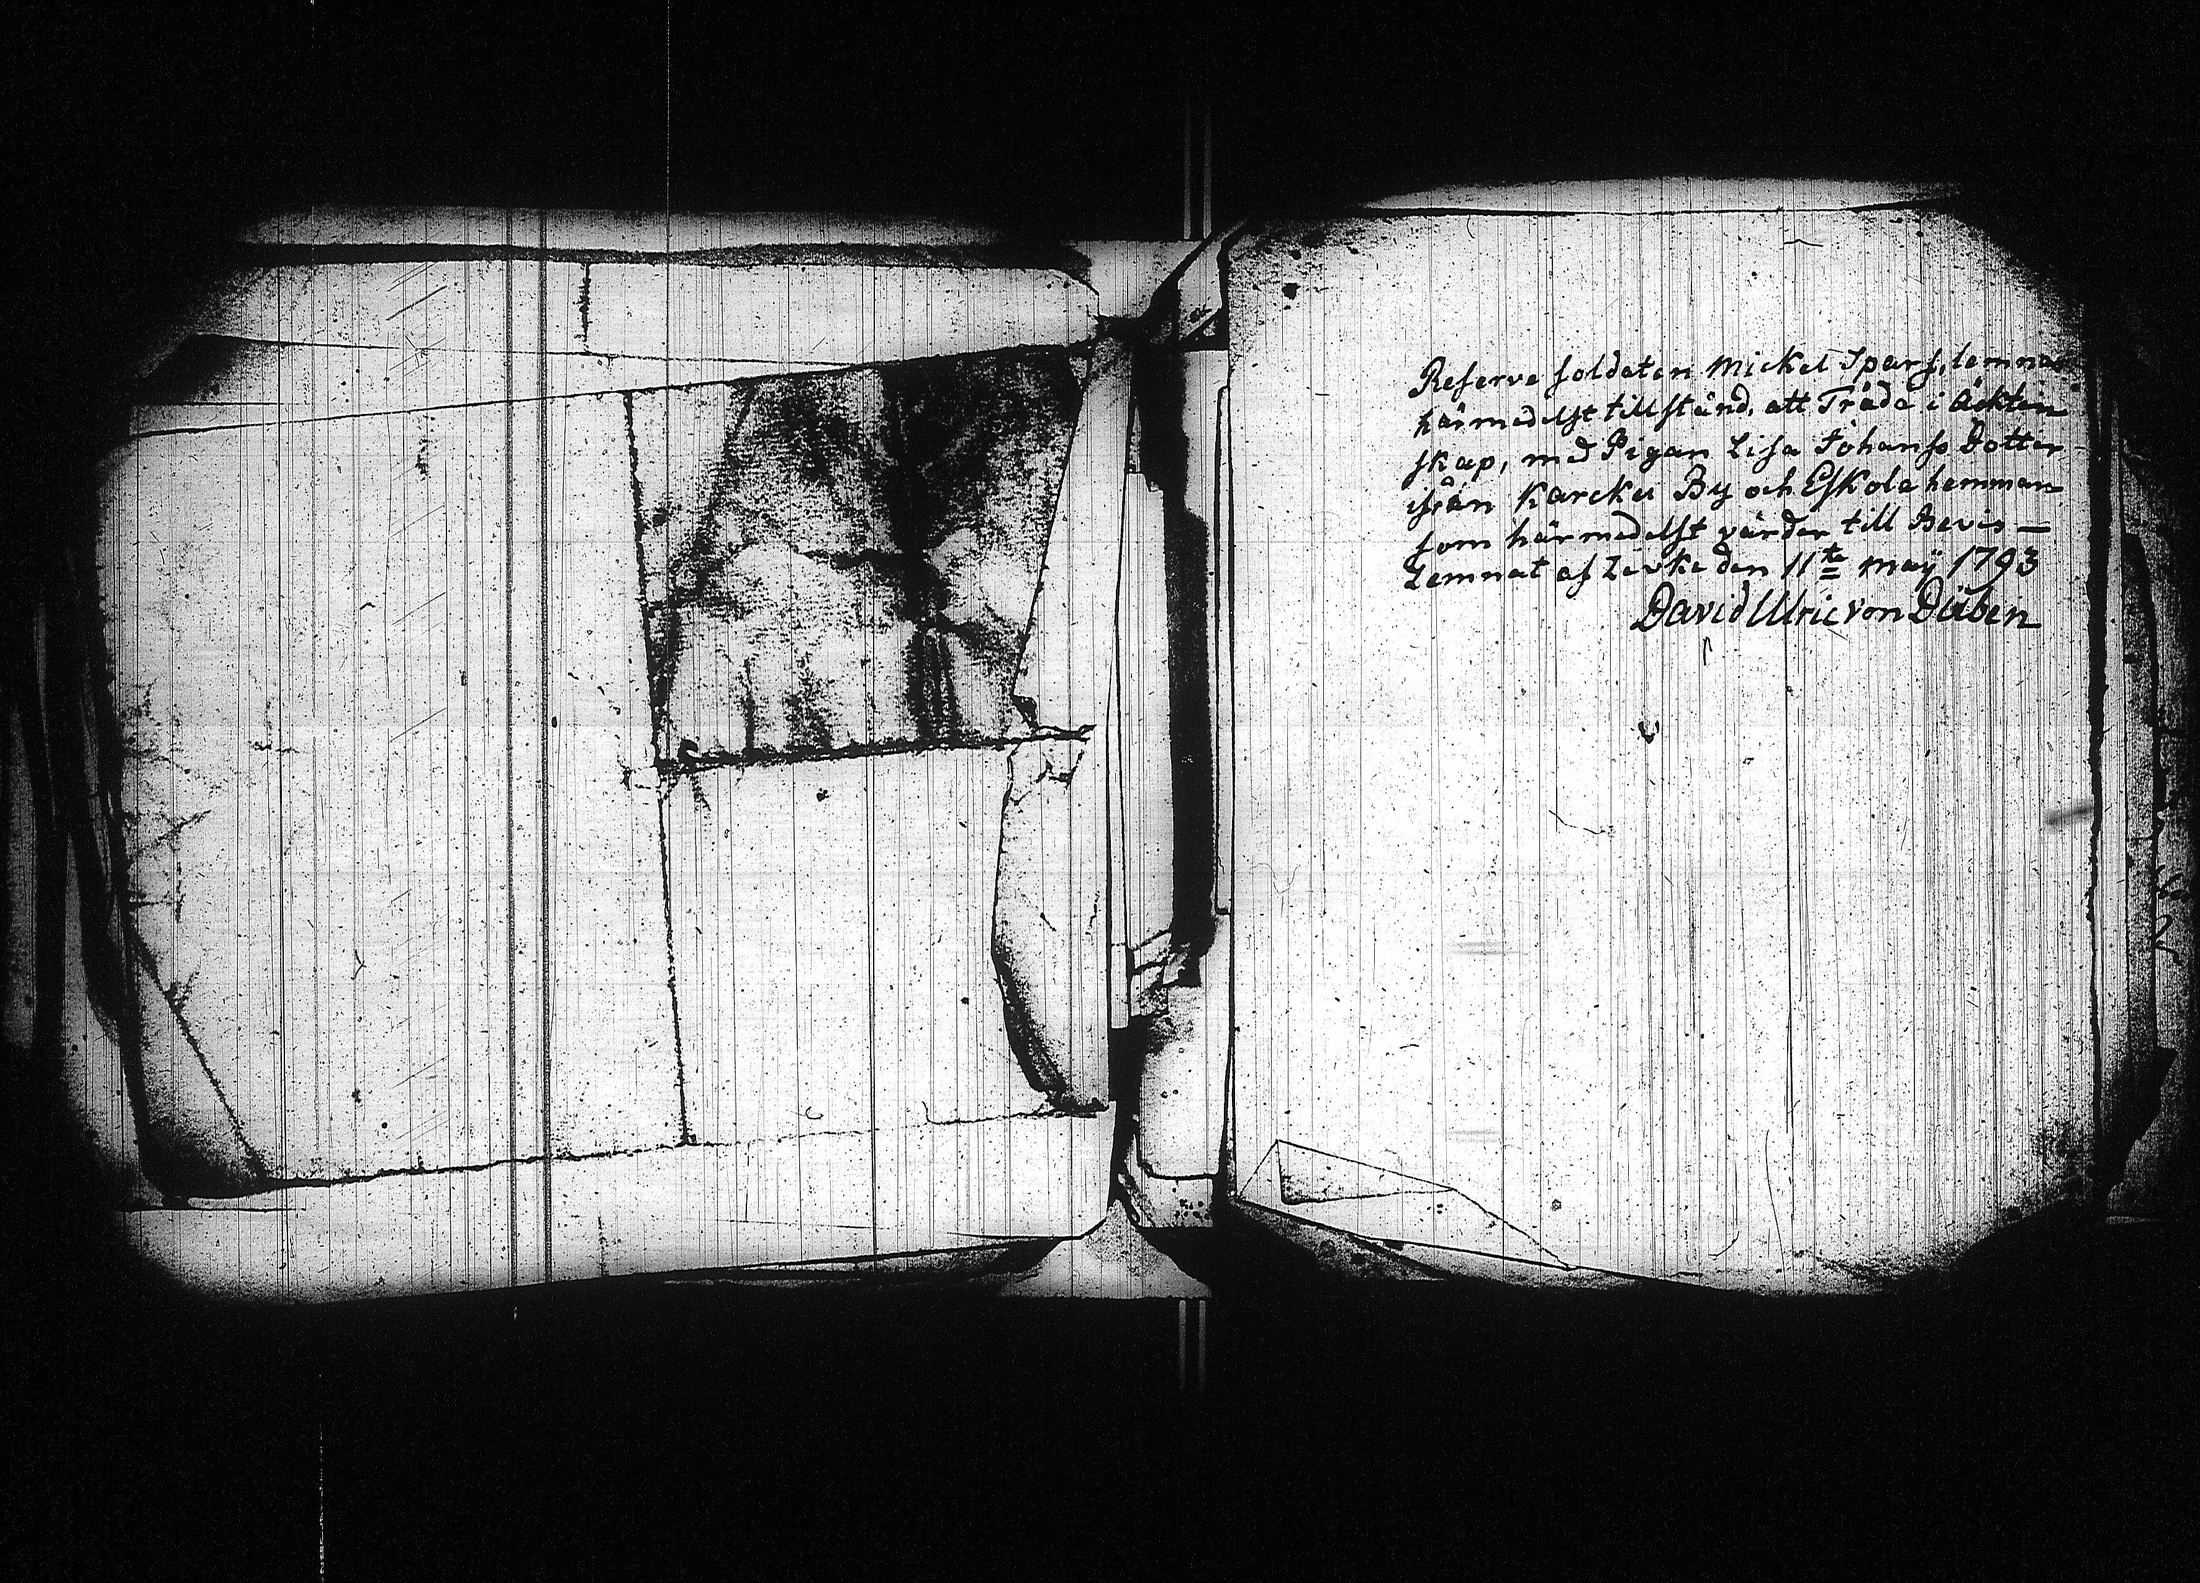 Reserve soldaten Mickel Spars, lemnas
härmedelst tillstånd, att Träda i Äckten
skap, med Pigan Lisa Johans Dotter
ifrån Karcku By och Eskola hemman
som härmedelst värder till Bevis —
Lemnat af den 11te Maÿ 1793
David Ulric von Düben